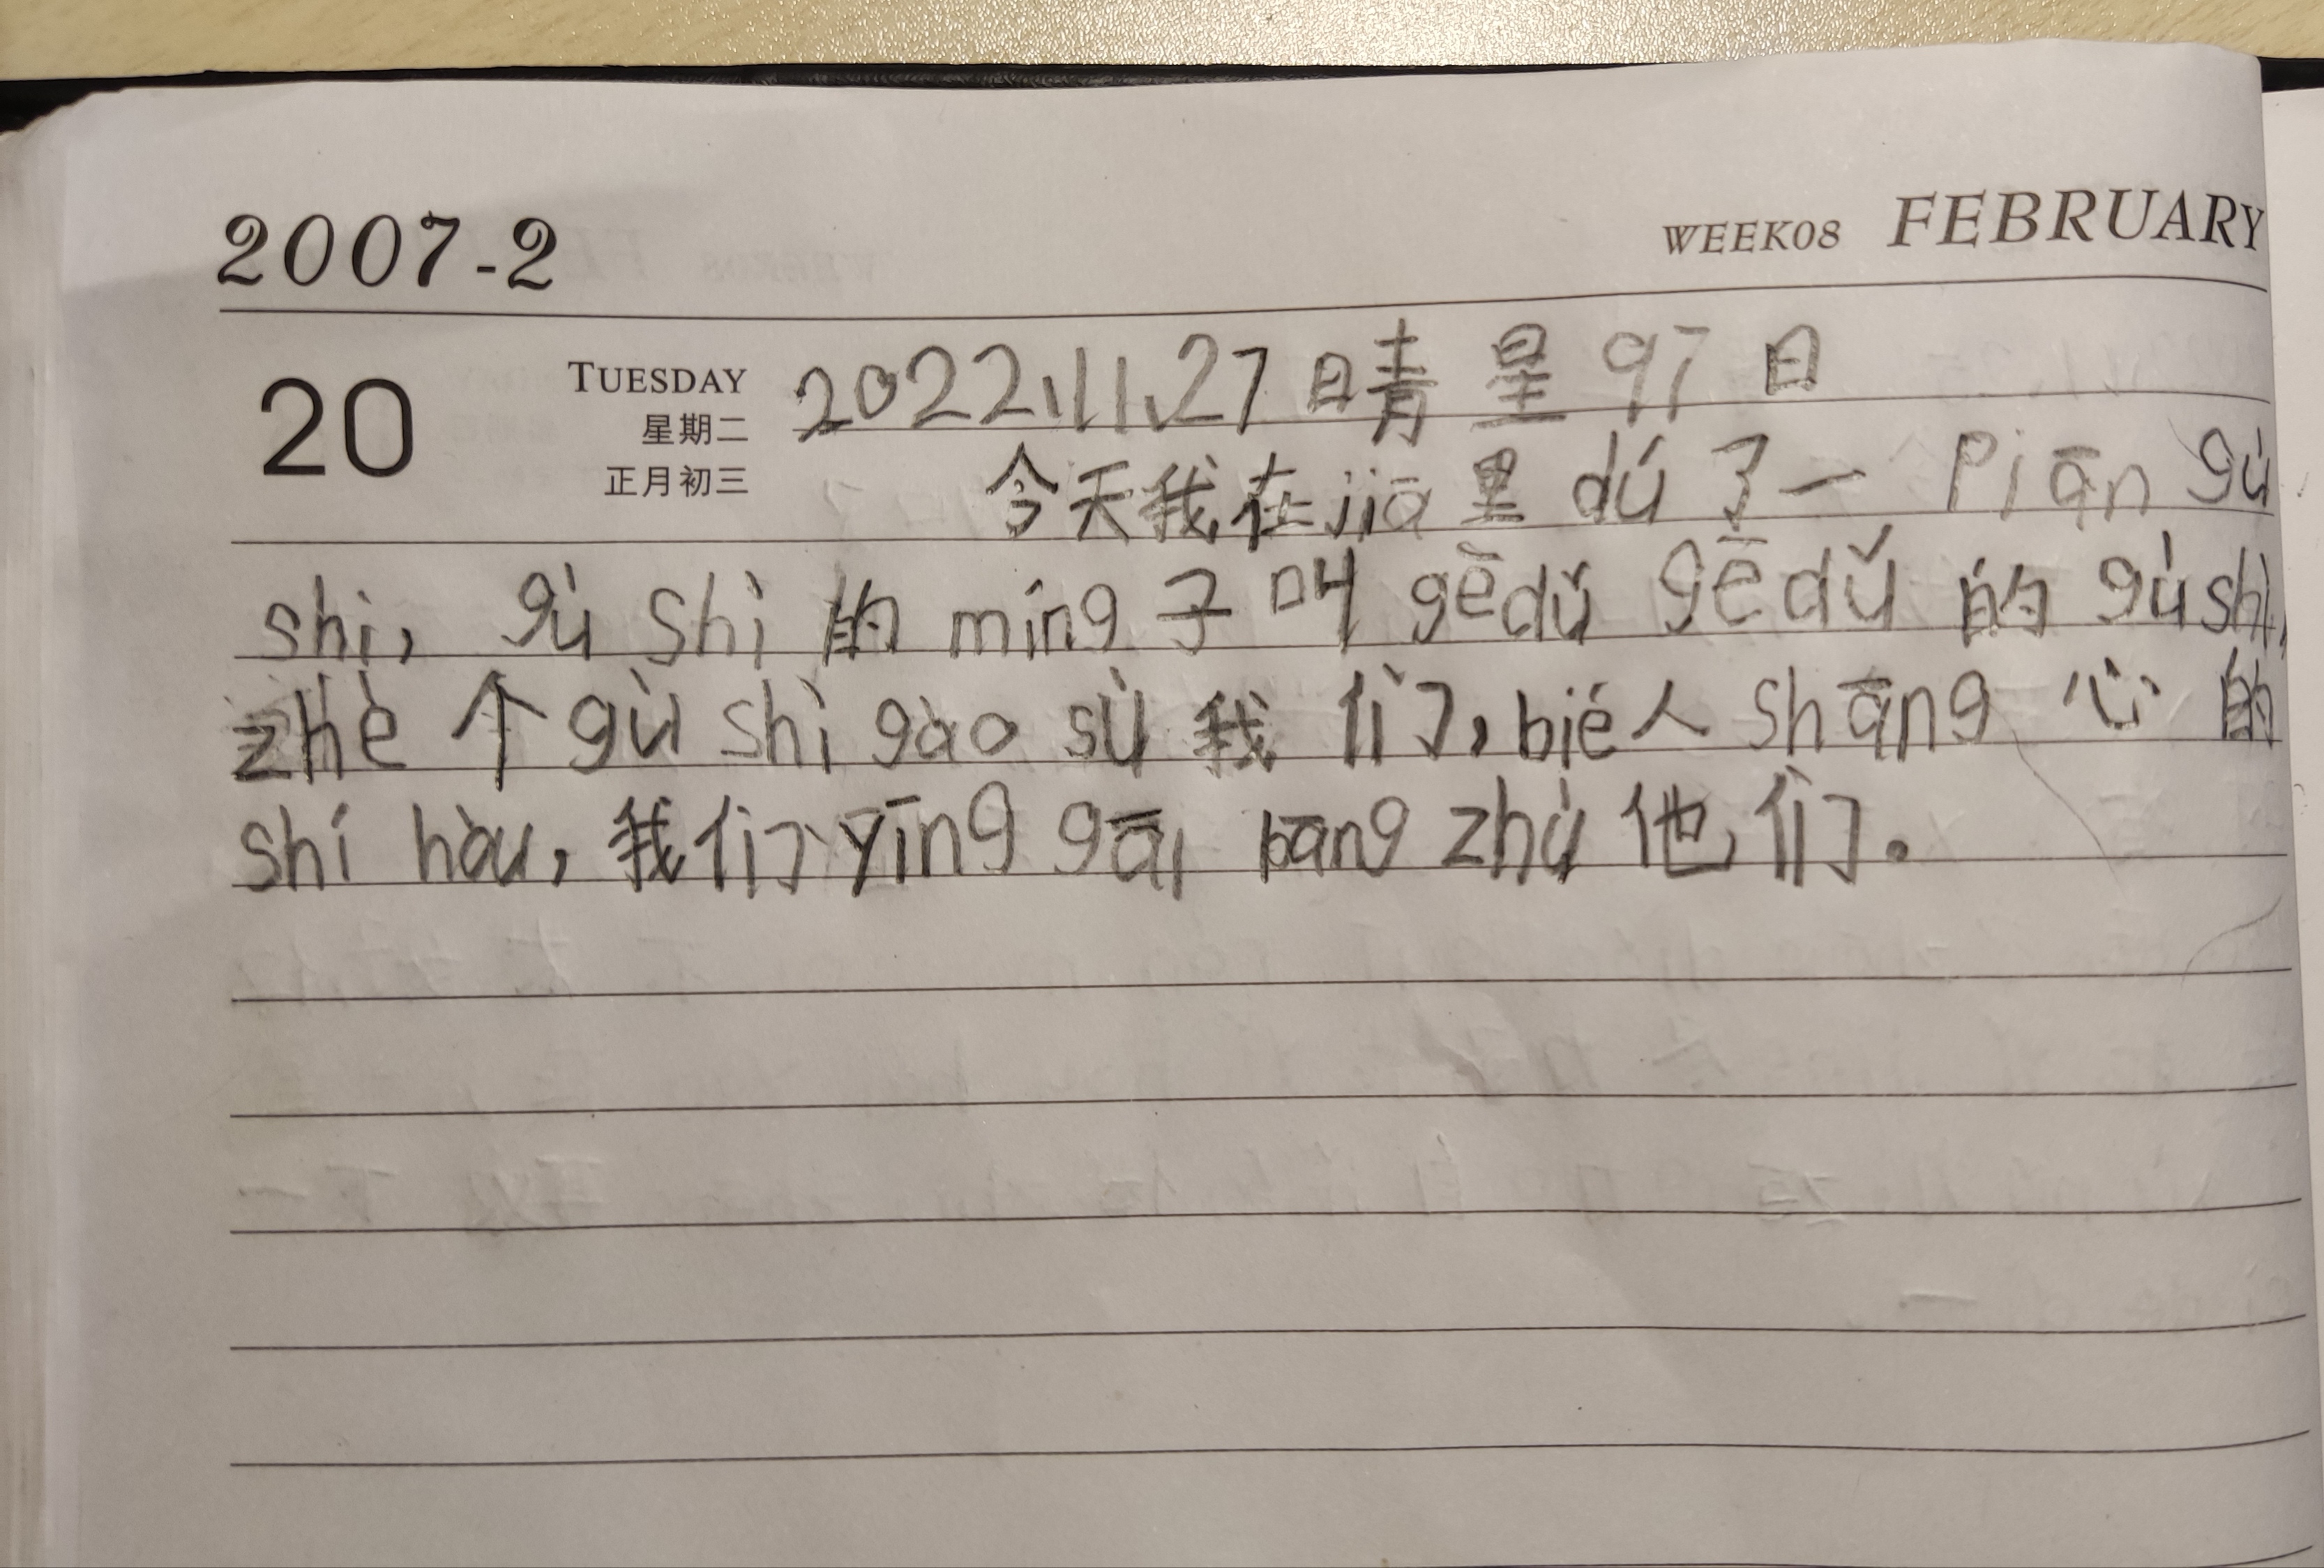 2007-2 WEEK08 FEBRUARY
20 TUESDAY
星期二
正月初三
2022.11.27 晴 星 qī 日
今天我在jiā里 dú 了一 Piān gù
shì, gù shì 的 míng 子 叫 gēdǔ gēdǔ 的 gùshì,
zhè 个 gù shì gào sù 我 们,bié人 shāng 心 的
shí hòu, 我们 yīng gāi bāng zhù 他 们。